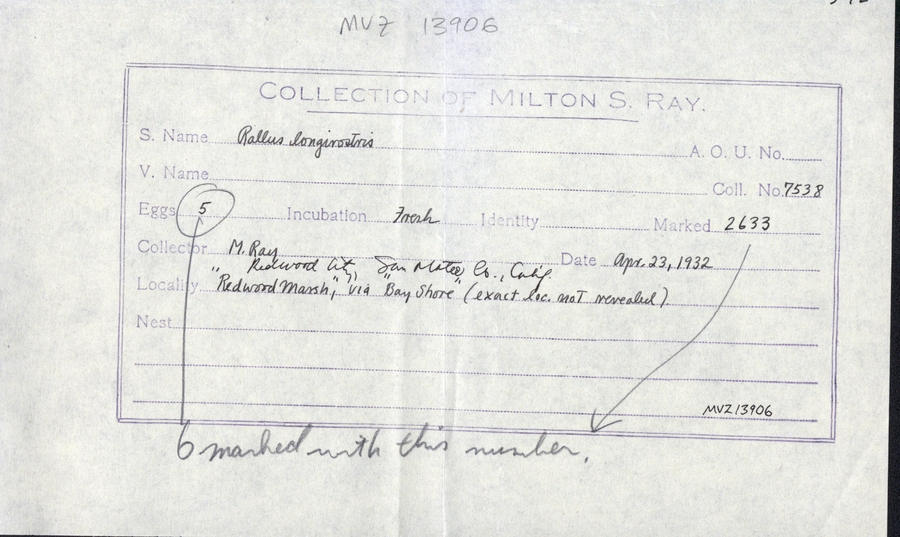 MVZ 13906
COLLECTION OF MILTON S. RAY.
S. Name Rallus longirostris A. O. U. No.
V. Name Coll. No. 7538
Eggs 5 Incubation Fresh Identity Marked 2633
Collector M. Ray Date Apr. 23, 1932
Redwood City, San Mateo Co., Calif.
Locality "Redwood Marsh," via "Bay Shore" (exact loc. not revealed)
Nest
MVZ 13906
6 marked with this number.